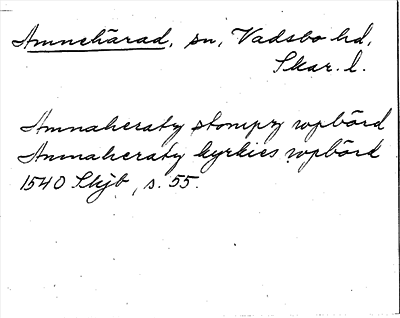 Amnehärad, sn, Vadsbo hd,
Skar. l.
Amnaheraty stompy upbörd
Amnaheraty kyrkies upbörd
1540 Skjb, s. 55.